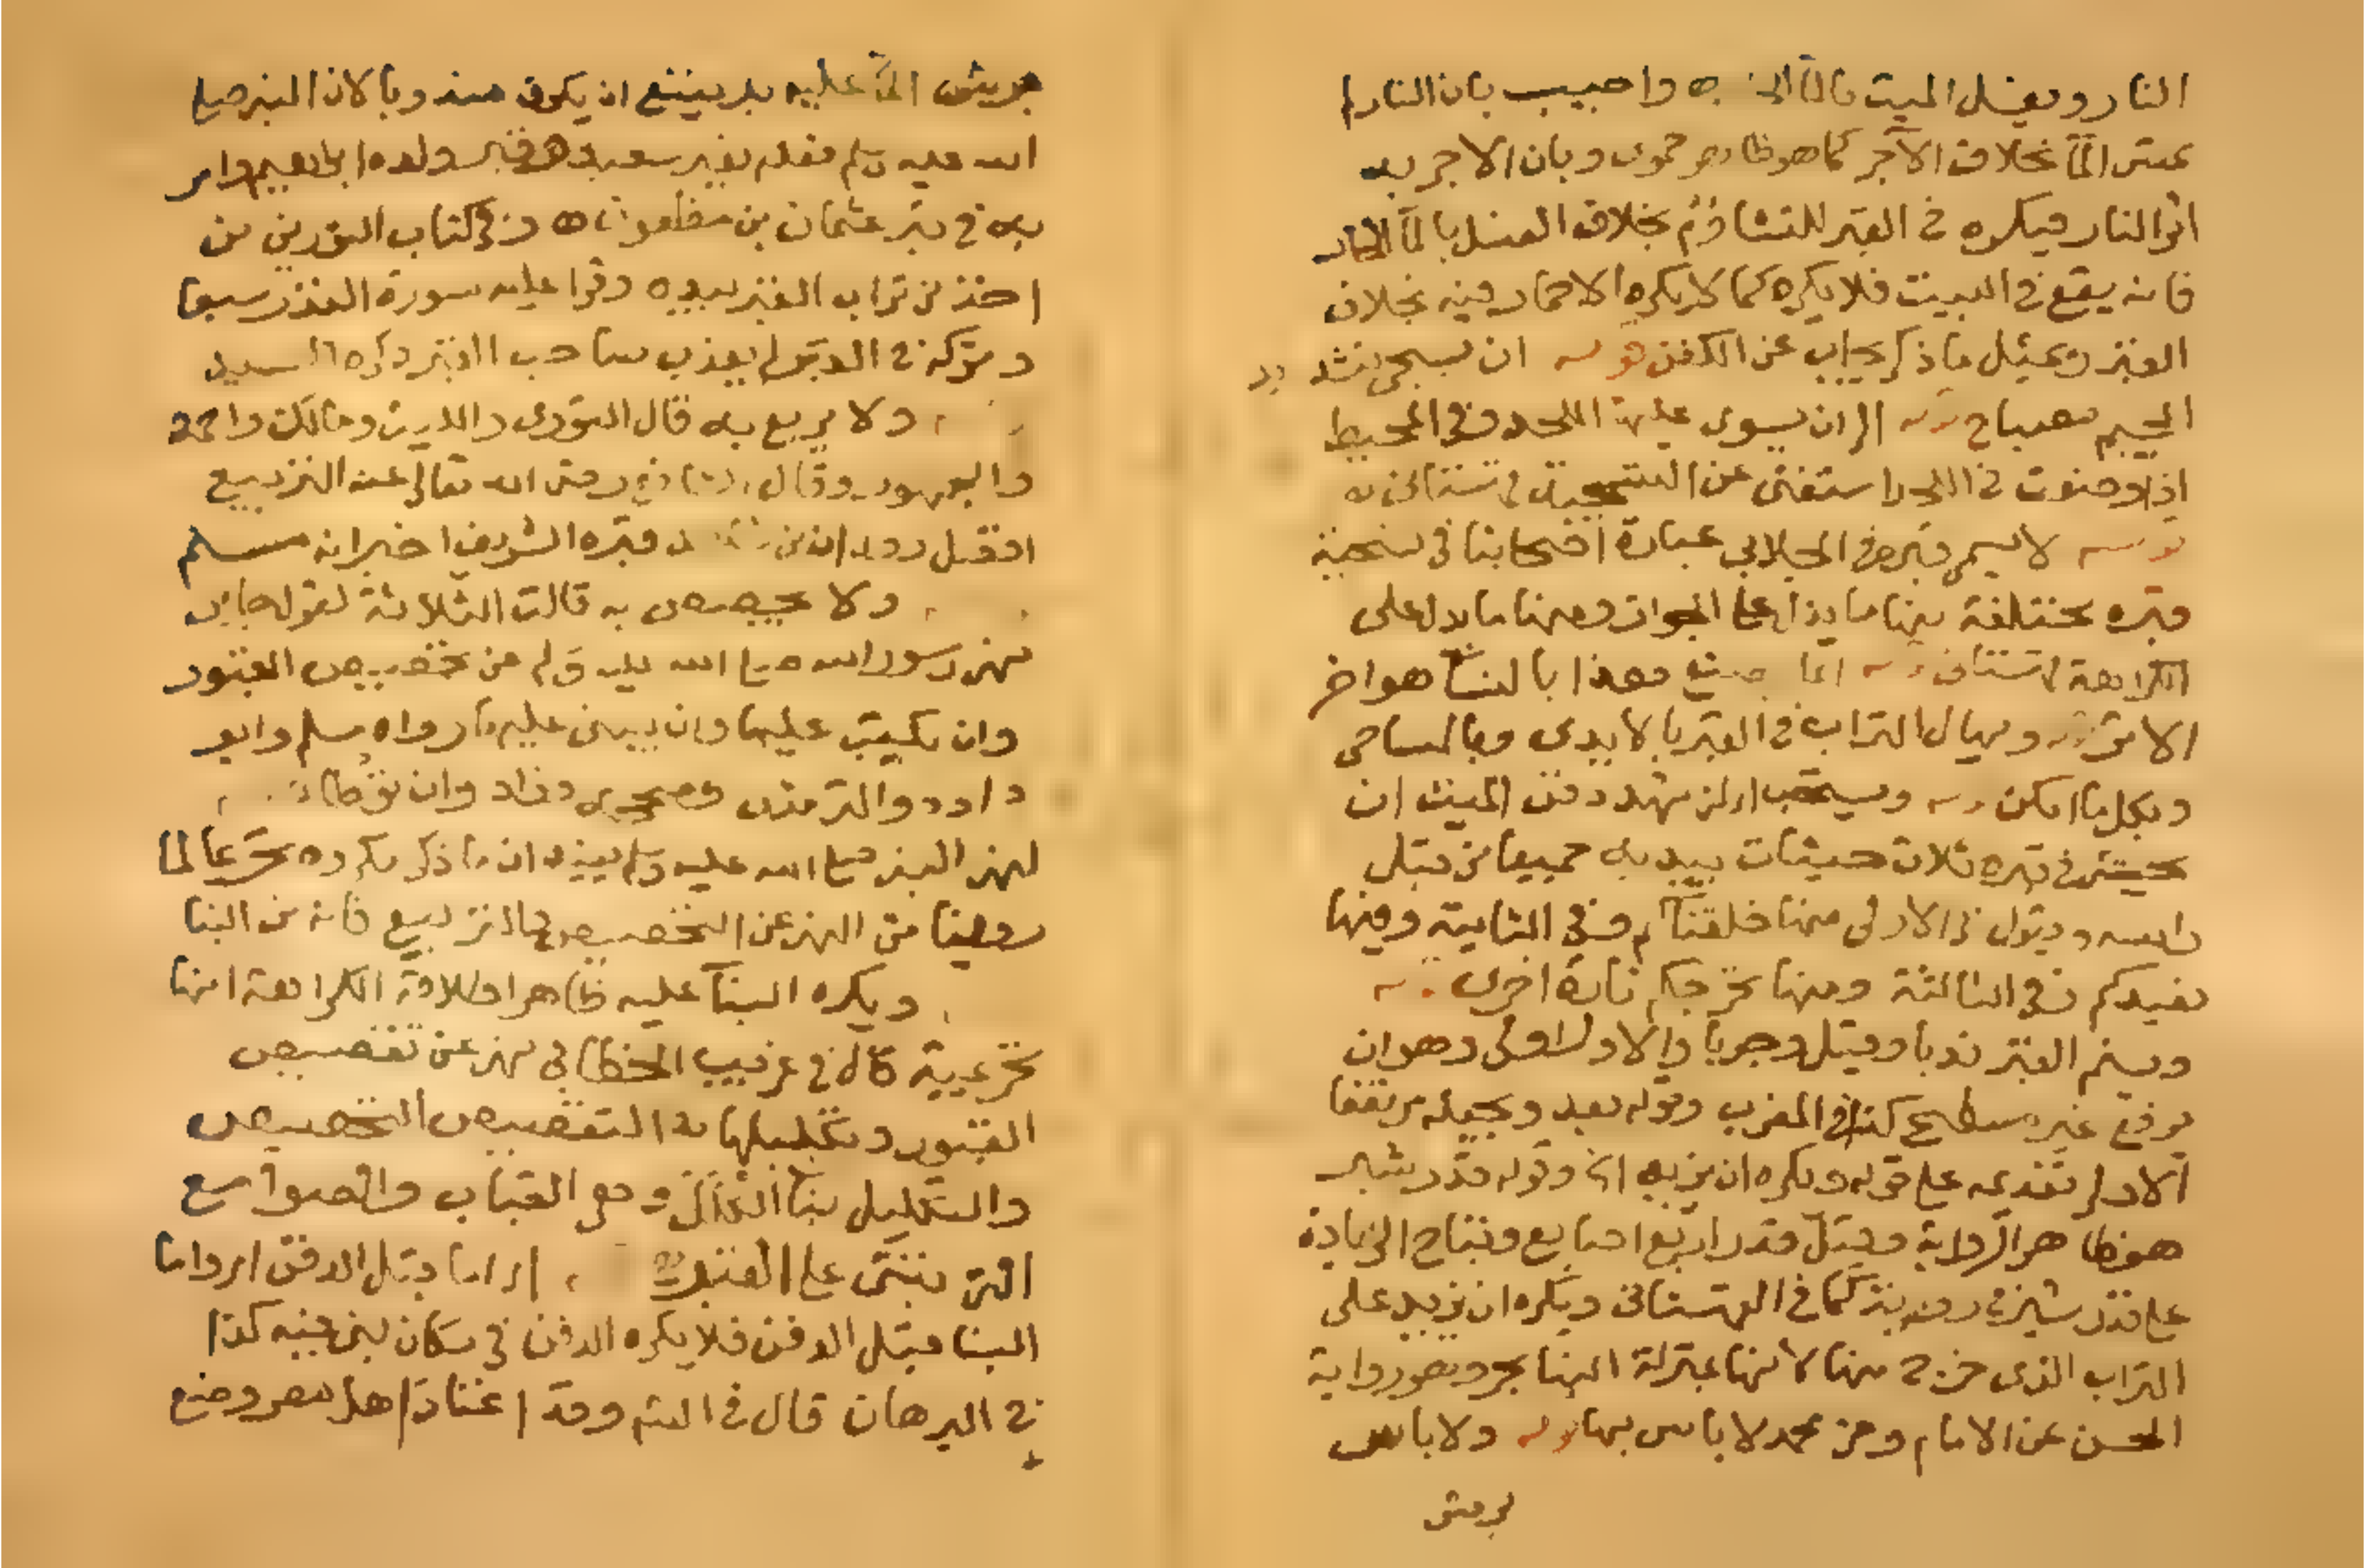 النار ويغسل الميت بالماء الحار واجيب بان النار لم
تمس الماء بخلاف الآجر كما هو ظاهر حموى وبان الاجر به
اثر النار فيكره في القبر للتشاؤم بخلاف الغسل بالماء الحار
فانه يقع في البيت فلا يكره كما لا يكره الاجمار فيه بخلاف
القبر وبمثل ما ذكر يجاب عن الكفن قوله ان يسجى بتشديد
الجيم مصباح قوله الى ان يسوى عليها اللحد وفي المحيط
اذا وضعت في اللحد استغنى عن التسجية قهستانى
قوله لا يسجى قبره في الجلابي عبارة اصحابنا في تسجية
قبره مختلفة منها ما يدل على الجواز ومنها ما يدل على
الكراهة قهستانى قوله انما وهذا بالنساء هو اخر
الاثر قوله ويهال التراب في القبر بالايدى وبالمساحى
وبكل ما امكن قوله ويستحب لمن شهد دفن الميت ان
يحثى في قبره ثلاث حثيات بيديه جميعا من قبل
راسه ويقول في الاولى منها خلقناكم وفي الثانية وفيها
نعيدكم وفي الثالثة ومنها نخرجكم تارة اخرى
ويسنم القبر ندبا وقيل وجوبا والاول اولى وهو ان
يرفع غير مسطح كذا في المغرب وقوله بعد ويجعله مرتفعا
الاولى تقديمه على قوله ويكره ان يزيد الخ وقوله قدر شبر
هو ظاهر الرواية وقيل قدر اربع اصابع وتباح الزيادة
على قدر شبر في رواية كما في القهستانى ويكره ان يزيد على
التراب الذى خرج منها لانها بمنزلة البناء بحر وهو رواية
الحسن عن الامام وعن محمد لا باس بها قوله ولا باس
برش
برش الماء عليه بل ينبغى ان يكون مندوبا لان النبى صلى
الله عليه وسلم فعله بقبر سعد وقبر ولده ابراهيم وامر
به في قبر عثمان بن مظعون وفي كتاب النورين من
اخذ من تراب القبر بيده وقرا عليه سورة القدر سبعا
وتركه في القبر لم يعذب صاحب القبر ذكره السيد
ولا يربع به قال الثورى والليث ومالك واحمد
والجمهور وقال الشافعى رضى الله تعالى عنه التربيع
افضل من قبره الشريف اخبر انه مسنم
ولا يجصص به قالت الثلاثة لقول جابر
نهى رسول الله صلى الله عليه وسلم عن تجصيص القبور
وان يكتب عليها وان يبنى عليها رواه مسلم وابو
داود والترمذى وصححه وزاد وان توطا
لنهى النبى صلى الله عليه وسلم يفيد ان ما ذكر مكروه تحريما لما
روينا من النهى عن التجصيص والتربيع فانه من البنا
ويكره البناء عليه ظاهر اطلاقه الكراهة انها
تحريمية قال في غريب الخطابي نهى عن تقصيص
القبور وتكليلها التقصيص التجصيص
والتكليل بناء الكلل وهى القباب والصوامع
التى تبنى على القبر اما قبل الدفن
البنا قبل الدفن فلا يكره الدفن في مكان بنى فيه كذا
في البرهان قال في الشم وقد اعتاد اهل مصر وضع